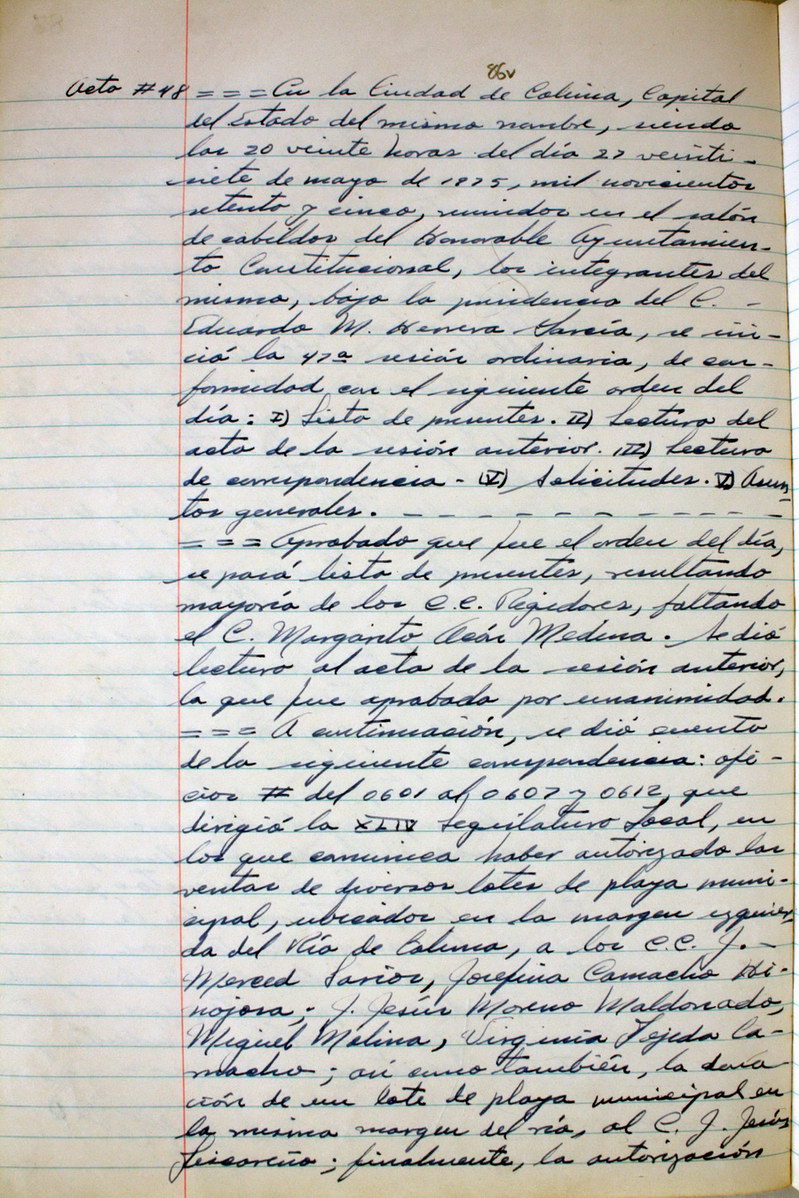 86v
Acta # 48 = = = En la Ciudad de Colima, Capital
del Estado del mismo nombre, siendo
las 20 veinte horas del día 27 veinti-
siete de mayo de 1975, mil novecientos
setenta y cinco, reunidos en el salón
de cabildos del Honorable Ayuntamien-
to Constitucional, los integrantes del
mismo, bajo la presidencia del C. -
Eduardo M. Herrera García, se ini-
ció la 47a sesión ordinaria, de con-
formidad con el siguiente orden del
día: I) Lista de presentes. II) Lectura del
acta de la sesión anterior. III) Lectura
de correspondencia - IV) Solicitudes. V) Asun-
tos generales. - - - - - - - - - - -
= = = Aprobado que fue el orden del día,
se pasó lista de presentes, resultando
mayoría de los C.C. Regidores, faltando
el C. Margarito Alcár Medina. Se dió
lectura al acta de la sesión anterior,
la que fue aprobada por unanimidad.
= = = A continuación, se dió cuenta
de la siguiente correspondencia: ofi-
cios # del 0601 al 0607 y 0612, que
dirigió la XLIV Legislatura Local, en
los que comunica haber autorizado las
ventas de diversos lotes de playa muni-
cipal, ubicados en la margen izquier-
da del Río de Colima, a los C.C. J. -
Merced Larios, Josefina Camacho Hi-
nojosa; J. Jesús Moreno Maldonado,
Miguel Molina, Virginia Tejeda Ca-
macho; así como también, la dona-
ción de un lote de playa municipal en
la misma margen del río, al C. J. Jesús
Liscareño; finalmente, la autorización